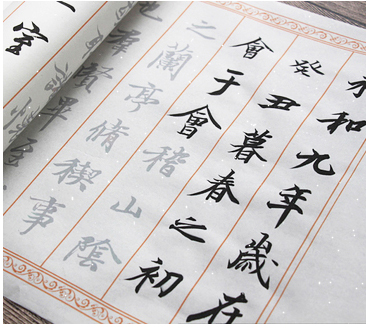 永和九年歲在
癸丑暮春之初
會于會稽山陰
之蘭亭脩禊事
也群賢畢至